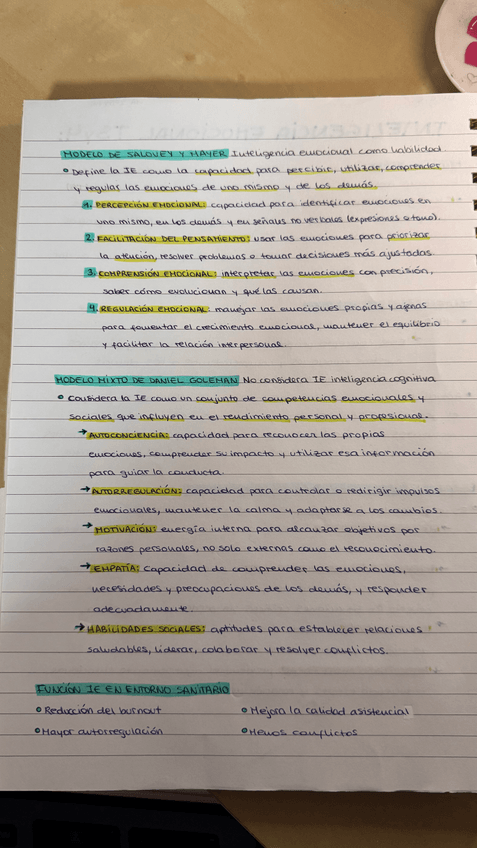 MODELO DE SALOVEY Y MAYER Inteligencia emocional como habilidad.
• Define la IE como la capacidad para percibir, utilizar, comprender
y regular las emociones de uno mismo y de los demás.
1. PERCEPCIÓN EMOCIONAL: capacidad para identificar emociones en
uno mismo, en los demás y en señales no verbales (expresiones o tono).
2. FACILITACIÓN DEL PENSAMIENTO: usar las emociones para priorizar
la atención, resolver problemas o tomar decisiones más ajustadas
3. COMPRENSIÓN EMOCIONAL: interpretar las emociones con precisión,
saber cómo evolucionan y qué las causan.
4. REGULACIÓN EMOCIONAL: manejar las emociones propias y ajenas
para fomentar el crecimiento emocional, mantener el equilibrio
y facilitar la relación interpersonal.
MODELO MIXTO DE DANIEL GOLEMAN No considera IE inteligencia cognitiva
• Considera la IE como un conjunto de competencias emocionales y
sociales que influyen en el rendimiento personal y profesional.
→ AUTOCONCIENCIA: capacidad para reconocer las propias
emociones, comprender su impacto y utilizar esa información
para guiar la conducta.
→ AUTORREGULACIÓN: capacidad para controlar o redirigir impulsos
emocionales, mantener la calma y adaptarse a los cambios.
→ MOTIVACIÓN: energía interna para alcanzar objetivos por
razones personales, no solo externas como el reconocimiento.
→ EMPATÍA: Capacidad de comprender las emociones,
necesidades y preocupaciones de los demás, y responder
adecuadamente.
→ HABILIDADES SOCIALES: aptitudes para establecer relaciones
saludables, liderar, colaborar y resolver conflictos.
FUNCIÓN IE EN ENTORNO SANITARIO
• Reducción del burnout
• Mejora la calidad asistencial
• Mayor autorregulación
• Menos conflictos